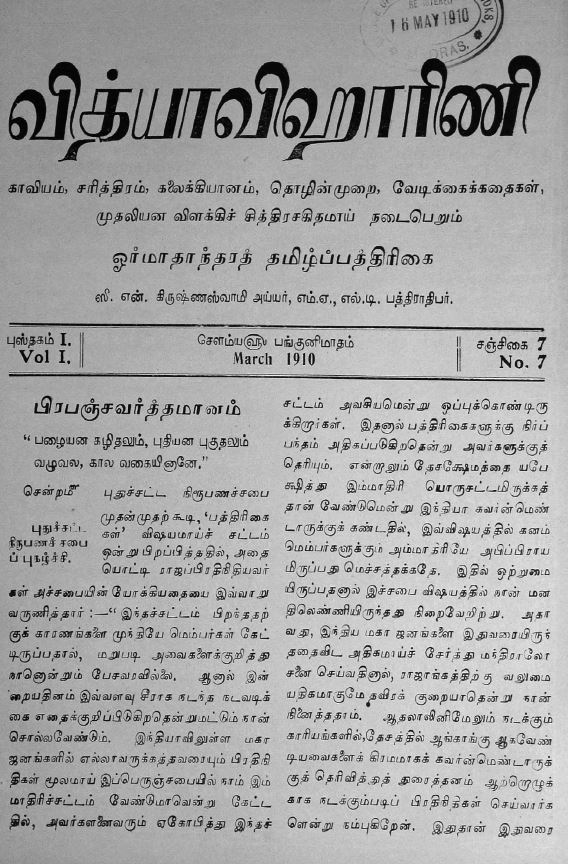 BE ENTERED
BOOKS,
16 MAY 1910
DRAS.
வித்யாவிஹாரிணி
காவியம், சரித்திரம், கலைக்கியானம், தொழின்முறை, வேடிக்கைக்கதைகள்,
முதலியன விளக்கிச் சித்திரசகிதமாய் நடைபெறும்
ஓர்மாதாந்தரத் தமிழ்ப்பத்திரிகை
ஸி. என். கிருஷ்ணஸ்வாமி அய்யர், எம்.ஏ., எல்.டி. பத்திராதிபர்.
புஸ்தகம் I.
Vol I.
சௌம்ய௵ பங்குனிமாதம்
March 1910
சஞ்சிகை 7
No. 7
பிரபஞ்சவர்த்தமானம்
“பழையன கழிதலும், புதியன புகுதலும்
வழுவல, கால வகையினானே.”
சென்றமீ புதுச்சட்ட நிரூபணச்சபை
புதுச்சட்ட
நிரூபணச் சபை
ப் புகழ்ச்சி.
முதன்முதற் கூடி, ‘பத்திரிகை
கள்’ விஷயமாய்ச் சட்டம்
ஒன்று பிறப்பித்ததில், அதை
யொட்டி ராஜப்பிரதிநிதியவர்
கள் அச்சபையின் யோக்கியதையை இவ்வாறு
வருணித்தார் :—“இந்தச்சட்டம் பிறந்ததற்
குக் காரணங்களை முந்தியே மெம்பர்கள் கேட்
டிருப்பதால், மறுபடி அவைகளைக்குறித்து
நானொன்றும் பேசவரவில்லை. ஆனால் இன்
றையதினம் இவ்வளவு சீராக நடந்த நடவடிக்
கை எதைக்குறிப்பிடுகிறதென்றுமட்டும் நான்
சொல்லவேண்டும். இந்தியாவிலுள்ள மகா
ஜனங்களில் எல்லாவருக்கத்தவரையும் பிரதிநி
திகள் மூலமாய் இப்பெருஞ்சபையில் நாம் இம்
மாதிரிச்சட்டம் வேண்டுமாவென்று கேட்ட
தில், அவர்களனைவரும் ஏகோபித்து இந்தச்
சட்டம் அவசியமென்று ஒப்புக்கொண்டிரு
க்கிறார்கள். இதனால் பத்திரிகைகளுக்கு நிர்ப்
பந்தம் அதிகப்படுகிறதென்று அவர்களுக்குத்
தெரியும். என்றாலும் தேசக்ஷேமத்தை யபே
க்ஷித்து இம்மாதிரி யொருசட்டமிருக்கத்
தான் வேண்டுமென்று இந்தியா கவர்ன்மெண்
டாருக்குக் கண்டதில், இவ்விஷயத்தில் கனம்
மெம்பர்களுக்கும் அம்மாதிரியே அபிப்பிராய
மிருப்பது மெச்சத்தக்கதே. இதில் ஒற்றுமை
யிருப்பதனால் இச்சபை விஷயத்தில் நான் மன
திலெண்ணியிருந்தது நிறைவேறிற்று. அதா
வது, இந்திய மகா ஜனங்களை இதுவரையிருந்
ததைவிட அதிகமாய்ச் சேர்த்து மந்திராலோ
சனை செய்வதினால், ராஜாங்கத்திற்கு வலுமை
யதிகமாகுமேதவிரக் குறையாதென்று நான்
நினைத்ததாம். ஆதலாலினிமேலும் நடக்கும்
காரியங்களில், தேசத்தில் ஆங்காங்கு ஆகவேண்
டியவைகளைக் கிரமமாகக் கவர்ன்மெண்டாருக்
குத் தெரிவித்துத் துரைத்தனம் ஆற்றொழுக்
காக நடக்கும்படிப் பிரதிநிதிகள் செய்வார்க
ளென்று நம்புகிறேன். இதுதான் இதுவரை